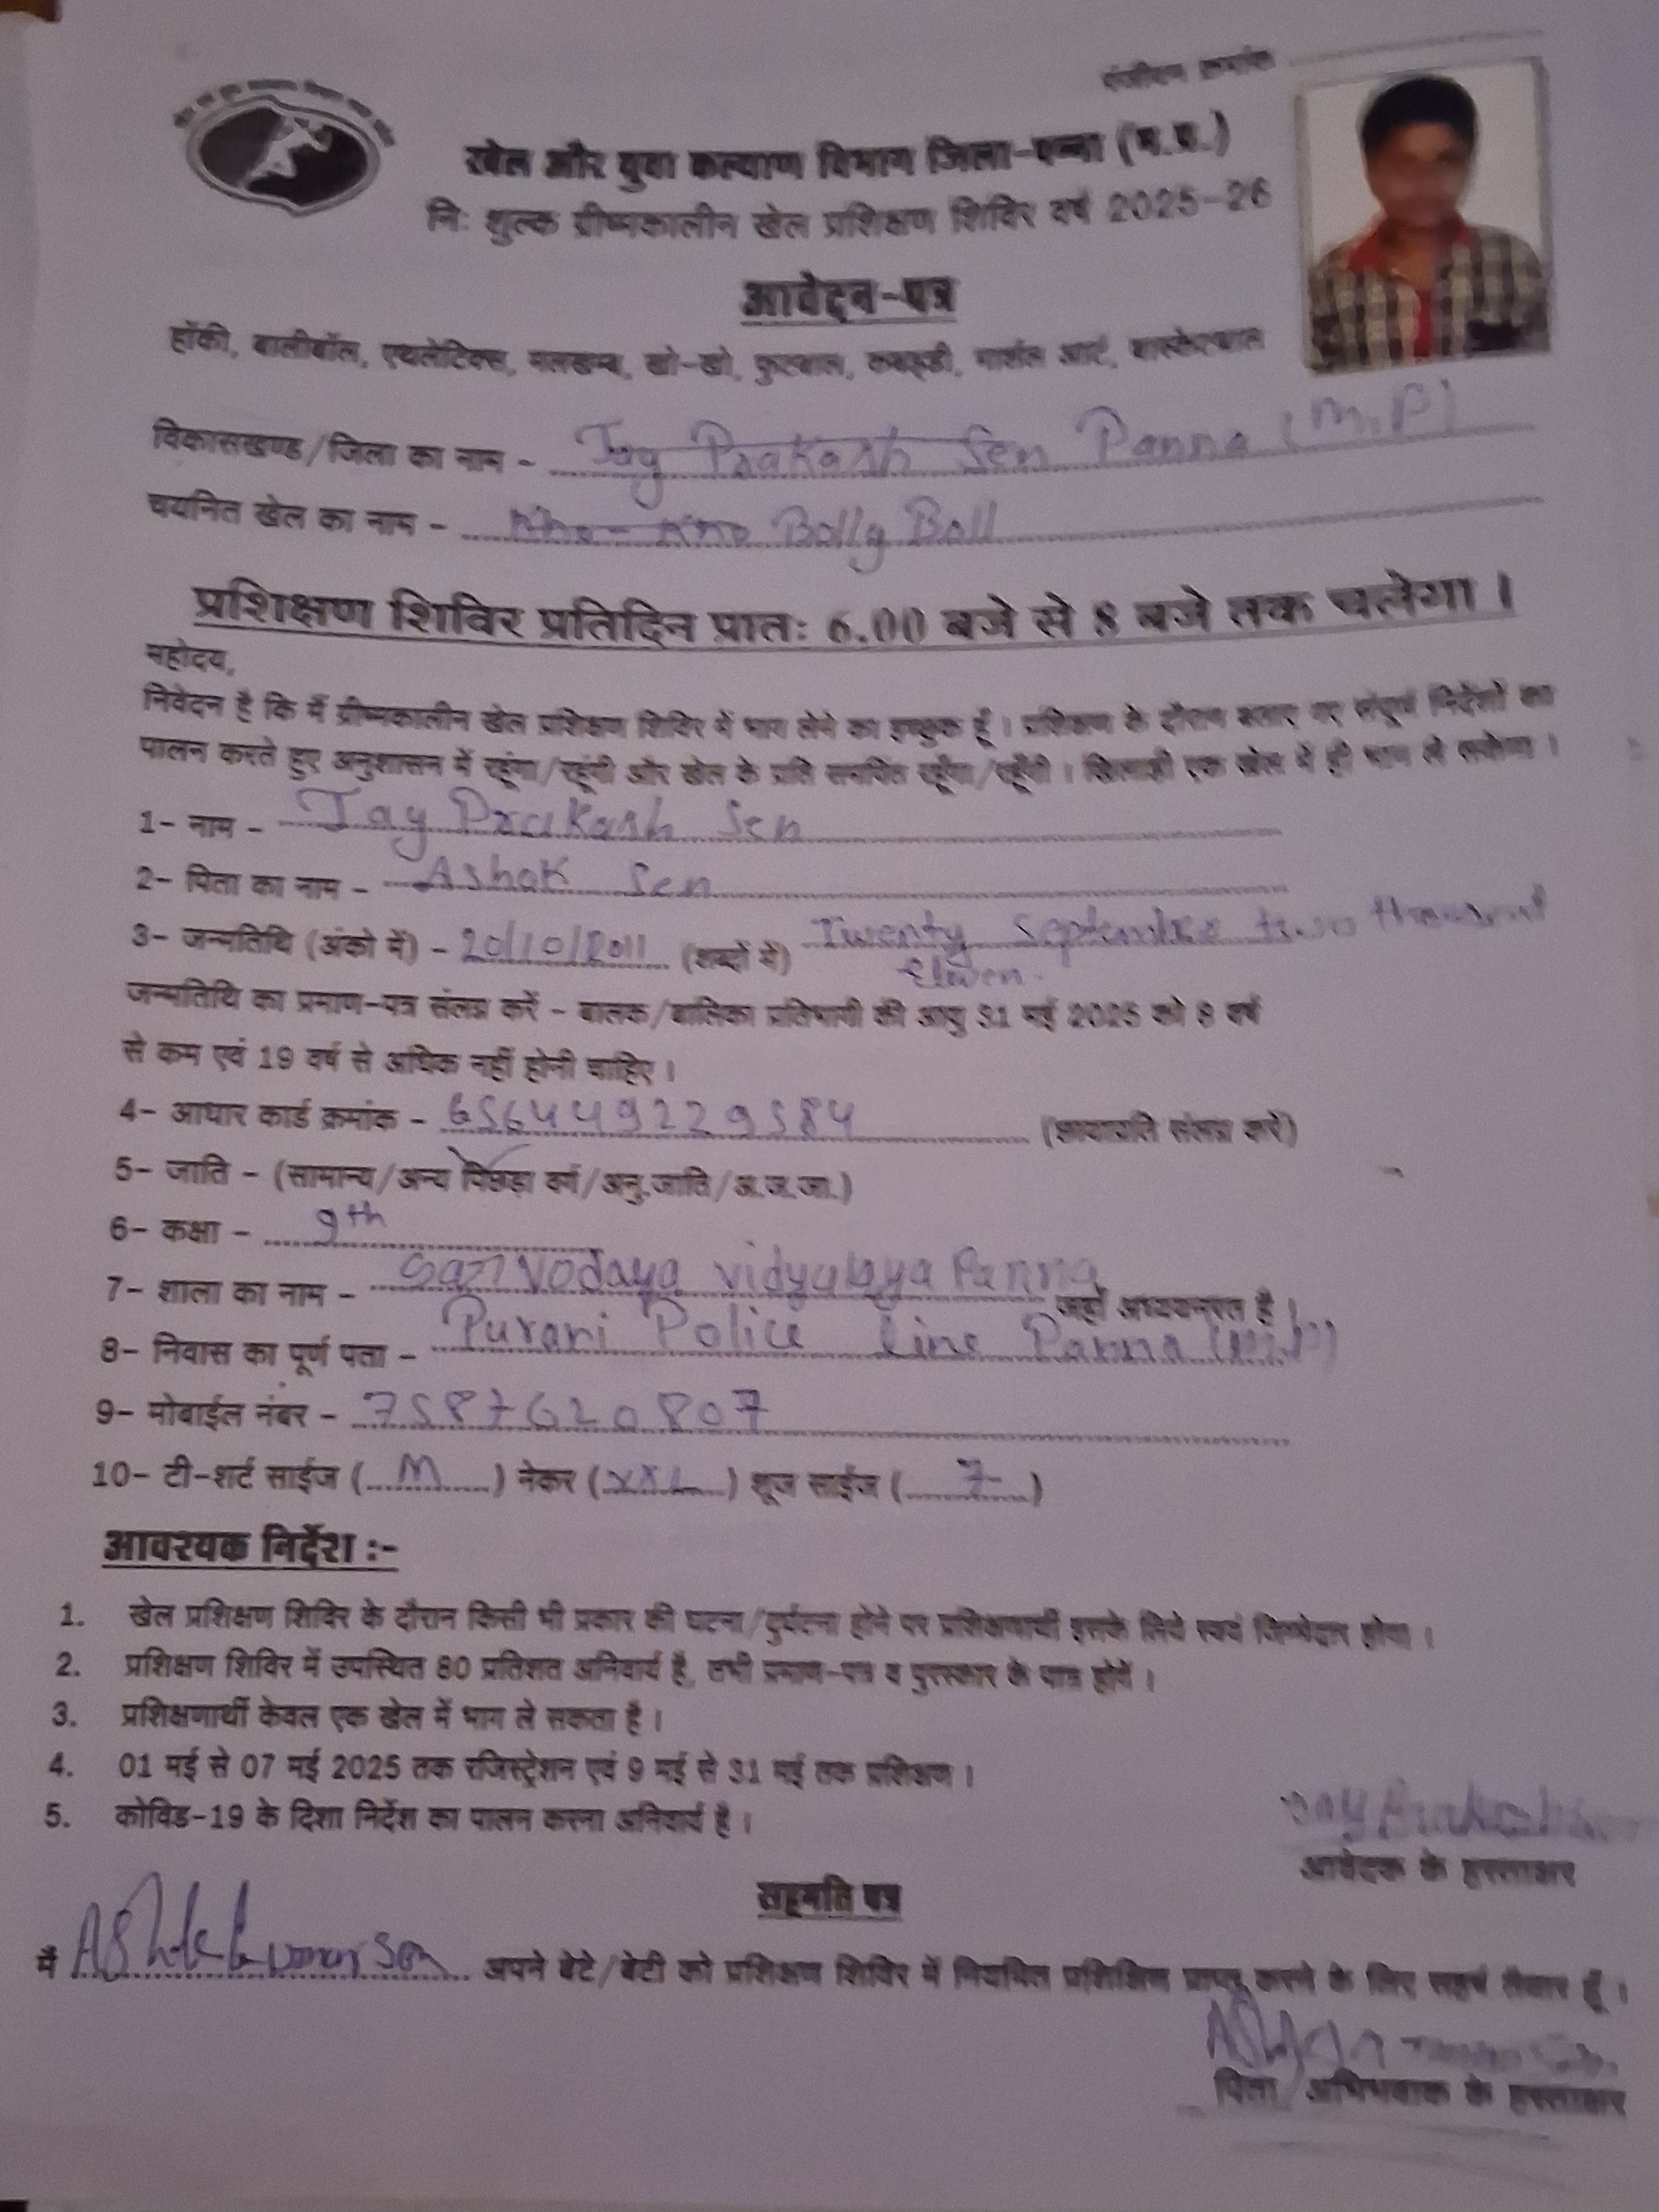 पंजीयन क्रमांक
खेल और युवा कल्याण विभाग जिला-पन्ना (म.प्र.)
नि: शुल्क ग्रीष्मकालीन खेल प्रशिक्षण शिविर वर्ष 2025-26
आवेदन-पत्र
हॉकी, बालीबॉल, एथलेटिक्स, मलखम्ब, खो-खो, फुटबाल, कबड्डी, मार्शल आर्ट, बास्केटबाल
विकासखण्ड/जिला का नाम - Jay Prakash Sen Panna (M.P)
चयनित खेल का नाम - Kho-Kho Bolly Boll
प्रशिक्षण शिविर प्रतिदिन प्रातः 6.00 बजे से 8 बजे तक चलेगा ।
महोदय,
निवेदन है कि मैं ग्रीष्मकालीन खेल प्रशिक्षण शिविर में भाग लेने का इच्छुक हूँ । प्रशिक्षण के दौरान बताए गए संपूर्ण निर्देशों का
पालन करते हुए अनुशासन में रहूंगा/रहूंगी और खेल के प्रति समर्पित रहूँगा/रहूँगी । खिलाड़ी एक खेल में ही भाग ले सकेगा ।
1- नाम - Jay Prakash Sen
2- पिता का नाम - Ashok Sen
3- जन्मतिथि (अंको में) - 20/10/2011 (शब्दों में) Twenty September two thousand
Eleven.
जन्मतिथि का प्रमाण-पत्र संलग्न करें - बालक/बालिका प्रतिभागी की आयु 31 मई 2025 को 8 वर्ष
से कम एवं 19 वर्ष से अधिक नहीं होनी चाहिए ।
4- आधार कार्ड क्रमांक - 656449229584 (छायाप्रति संलग्न करें)
5- जाति - (सामान्य/अन्य पिछड़ा वर्ग/अनु.जाति/अ.ज.जा.)
6- कक्षा - 9th
7- शाला का नाम - Sarvodaya vidyalaya Panna जहाँ अध्ययनरत है ।
8- निवास का पूर्ण पता - Purani Police line Panna (M.P)
9- मोबाईल नंबर - 7587620807
10- टी-शर्ट साईज (M) नेकर (XXL) शूज साईज (7)
आवश्यक निर्देश :-
1. खेल प्रशिक्षण शिविर के दौरान किसी भी प्रकार की घटना/दुर्घटना होने पर प्रशिक्षणार्थी इसके लिये स्वयं जिम्मेदार होगा ।
2. प्रशिक्षण शिविर में उपस्थित 80 प्रतिशत अनिवार्य है, तभी प्रमाण-पत्र व पुरस्कार के पात्र होगें ।
3. प्रशिक्षणार्थी केवल एक खेल में भाग ले सकता है ।
4. 01 मई से 07 मई 2025 तक रजिस्ट्रेशन एवं 9 मई से 31 मई तक प्रशिक्षण ।
5. कोविड-19 के दिशा निर्देश का पालन करना अनिवार्य है ।
Jay Prakash
आवेदक के हस्ताक्षर
सहमति पत्र
मैं Ashok kumar Sen अपने बेटे/बेटी को प्रशिक्षण शिविर में नियमित प्रशिक्षण प्राप्त करने के लिए सहर्ष तैयार हूँ ।
पिता/अभिभावक के हस्ताक्षर